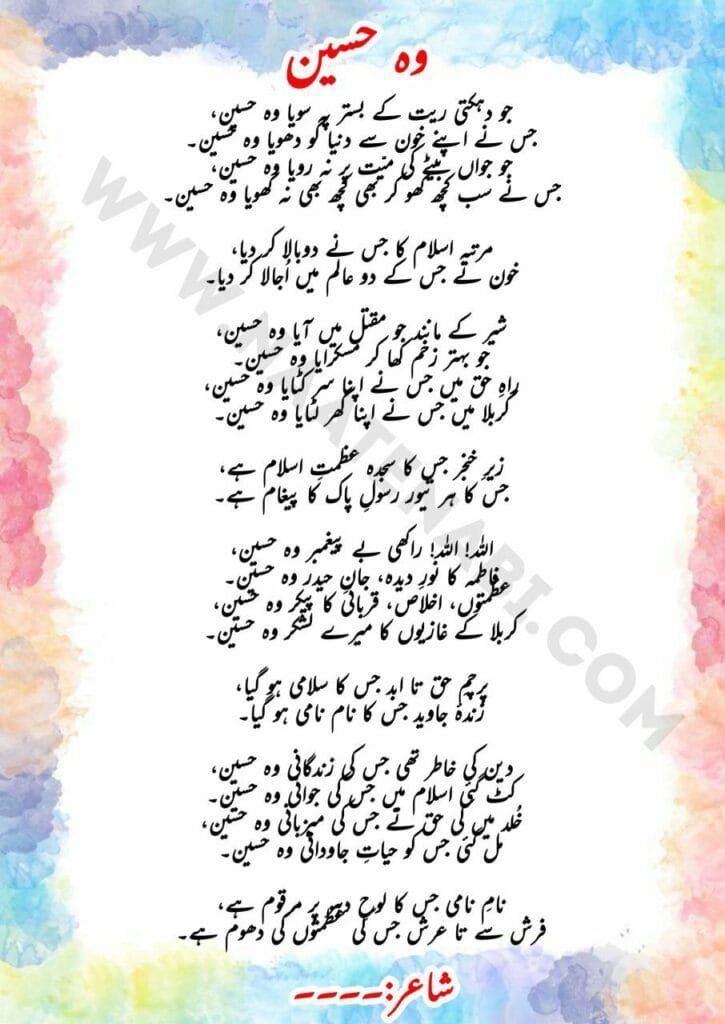 وہ حسین
جو دہکتی ریت کے بستر پہ سویا وہ حسین،
جس نے اپنے خون سے دنیا کو دھویا وہ حسین۔
جو جواں بیٹے کی میّت پر نہ رویا وہ حسین،
جس نے سب کچھ کھو کر بھی کچھ بھی نہ کھویا وہ حسین۔
مرتبہ اسلام کا جس نے دوبالا کر دیا،
خون نے جس کے دو عالم میں اُجالا کر دیا۔
شیر کے مانند جو مقتل میں آیا وہ حسین،
جو بہتر زخم کھا کر مسکرایا وہ حسین۔
راہِ حق میں جس نے اپنا سر کٹایا وہ حسین،
کربلا میں جس نے اپنا گھر لٹایا وہ حسین۔
زیرِ خنجر جس کا سجدہ عظمتِ اسلام ہے،
جس کا ہر تیور رسولِ پاک کا پیغام ہے۔
اللہ! اللہ! راکھی بے پیغمبر وہ حسین،
فاطمہ کا نورِ دیدہ، جانِ حیدر وہ حسین۔
عظمتوں، اخلاص، قربانی کا پیکر وہ حسین،
کربلا کے غازیوں کا میرے لشکر وہ حسین۔
پرچمِ حق تا ابد جس کا سلامی ہو گیا،
زندہ جاوید جس کا نام نامی ہو گیا۔
دین کی خاطر تھی جس کی زندگانی وہ حسین،
کٹ گئی اسلام میں جس کی جوانی وہ حسین۔
خُلد میں کی حق نے جس کی میزبانی وہ حسین،
مل گئی جس کو حیاتِ جاودانی وہ حسین۔
نامِ نامی جس کا لوحِ دہر پر مرقوم ہے،
فرش سے تا عرش جس کی عظمتوں کی دھوم ہے۔
شاعر:----
WWW.NAATENABI.COM